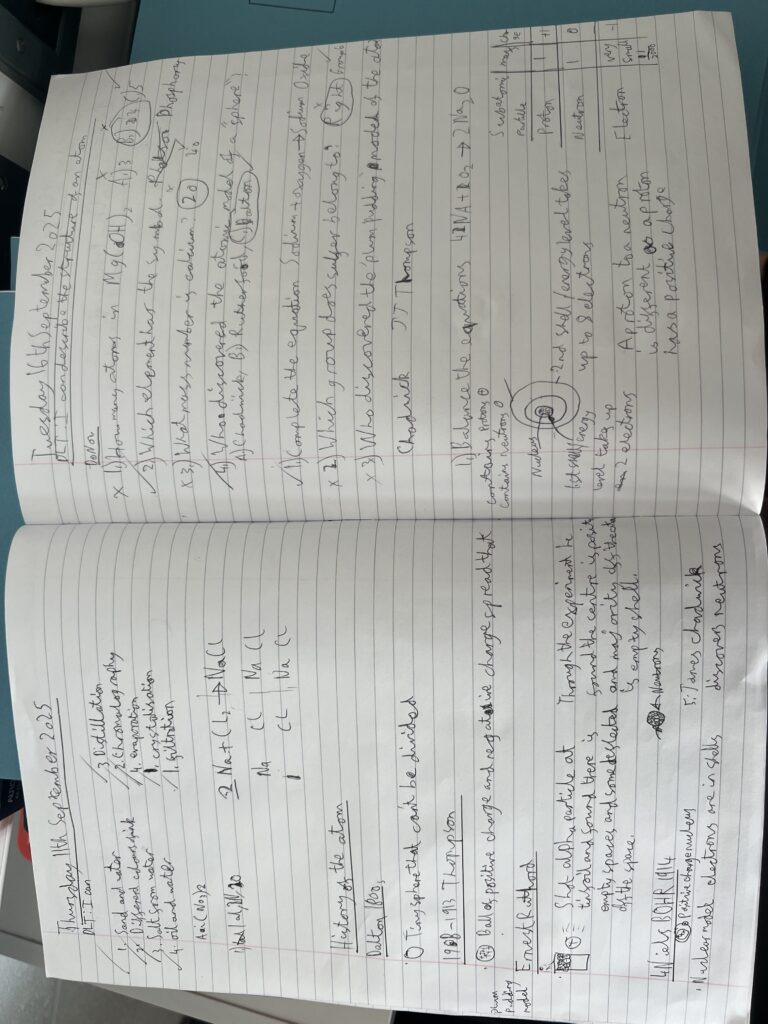 Thursday 11th September 2025
PLT: I can
1. Sand and water
2. Different colours ink
3. Salt from water
4. oil and water
3 Distillation
2. Chromotography
4. evaporation
1. crystalisation
1. filtration
2 Na + Cl2 → NaCl
Na Cl Na Cl
Cl Na Cl
History of the atom
Dalton
O Tiny sphere that can't be divided
Thompson
plum pudding model
Ball of positive charge and negative charge spread that
Ernest
Shot alpha particle at
foil and found there is
empty spaces and some deflected
of the space.
Through the experiment he
found the centre is posit
and majority of
is empty shell.
4. Niels BOHR 1914
positive charge nucleus
Neutrons
Nuclear model electrons are in shells
5. James chadwick
discovers neutrons
Tuesday 16th September 2025
PLT: I can describe the structure of an atom
Do Now
x 1) How many atoms in Mg(OH)2 A) 3 B) 3 C) 5
2) Which element has the symbol Phosphorus
x 3) What mass number is calcium? 20 40
4) Who discovered the atomic model of a "sphere"?
A) Chadwick, B) Rutherford, C) Dalton
1) Complete the equation Sodium + oxygen → Sodium Oxide
x 2) Which group does sulfer belong to? Right
x 3) Who discovered the plum pudding model of the atom
Chadwick JJ Thompson
1) Balance the equations 4NA + O2 → 2Na2O
contains protons
contains neutrons
Nucleus
1st shell/energy
level take up
2 electrons
2nd shell/energy level takes
up to 8 electrons
A proton to a neutron
is different a proton
has a positive charge
Subatomic particle mass
Proton 1 +1
Neutron 1 0
Electron very small -1